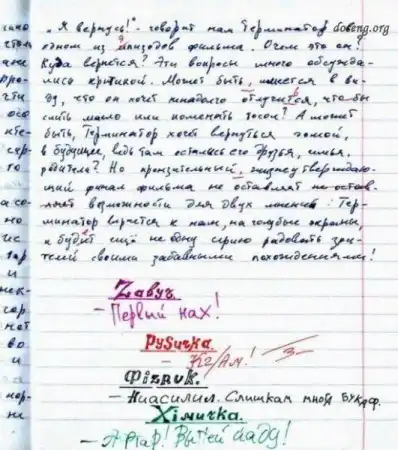 dobeng.org
„Я вернусь!" - говорит нам Терминатор
одном из эпизодов фильма. О чем это он?
Куда вернется? Эти вопросы много обсужда-
лись критикой. Может быть, имеется в ви-
ду, что он хочет ненадолго отлучится, что-бы
слить масло или поменять тосол? А может
быть, Терминатор хочет вернуться домой,
в будущее, ведь там остались его друзья, семья,
родители? Но пронзительный,
щий финал фильма не оставляет не остав-
ляет возможности для двух мнений: Тер-
минатор вернется к нам, на голубые экраны,
и будет ещё не одну серию радовать зри-
телей своими забавными похождениями!
Zавуч.
- Первый нах!
Руsичка.
- КГ/Ам! 3-
Фiзрuk.
- Ниасилил. Слишкам мног БУКАФ.
Хiмичка.
- Афтар! Выпей йаду!